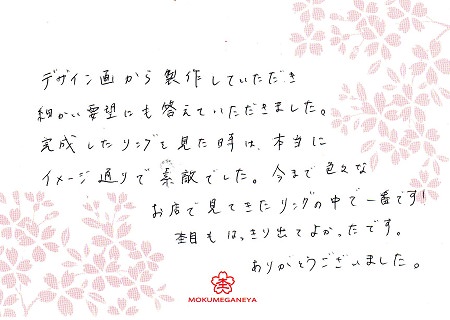 デザイン画から製作していただき
細かい要望にも答えていただきました。
完成したリングを見た時は、本当に
イメージ通りで素敵でした。今まで色々な
お店で見てきたリングの中で一番です!
杢目もはっきり出てよかったです。
ありがとうございました。
杢
MOKUMEGANEYA